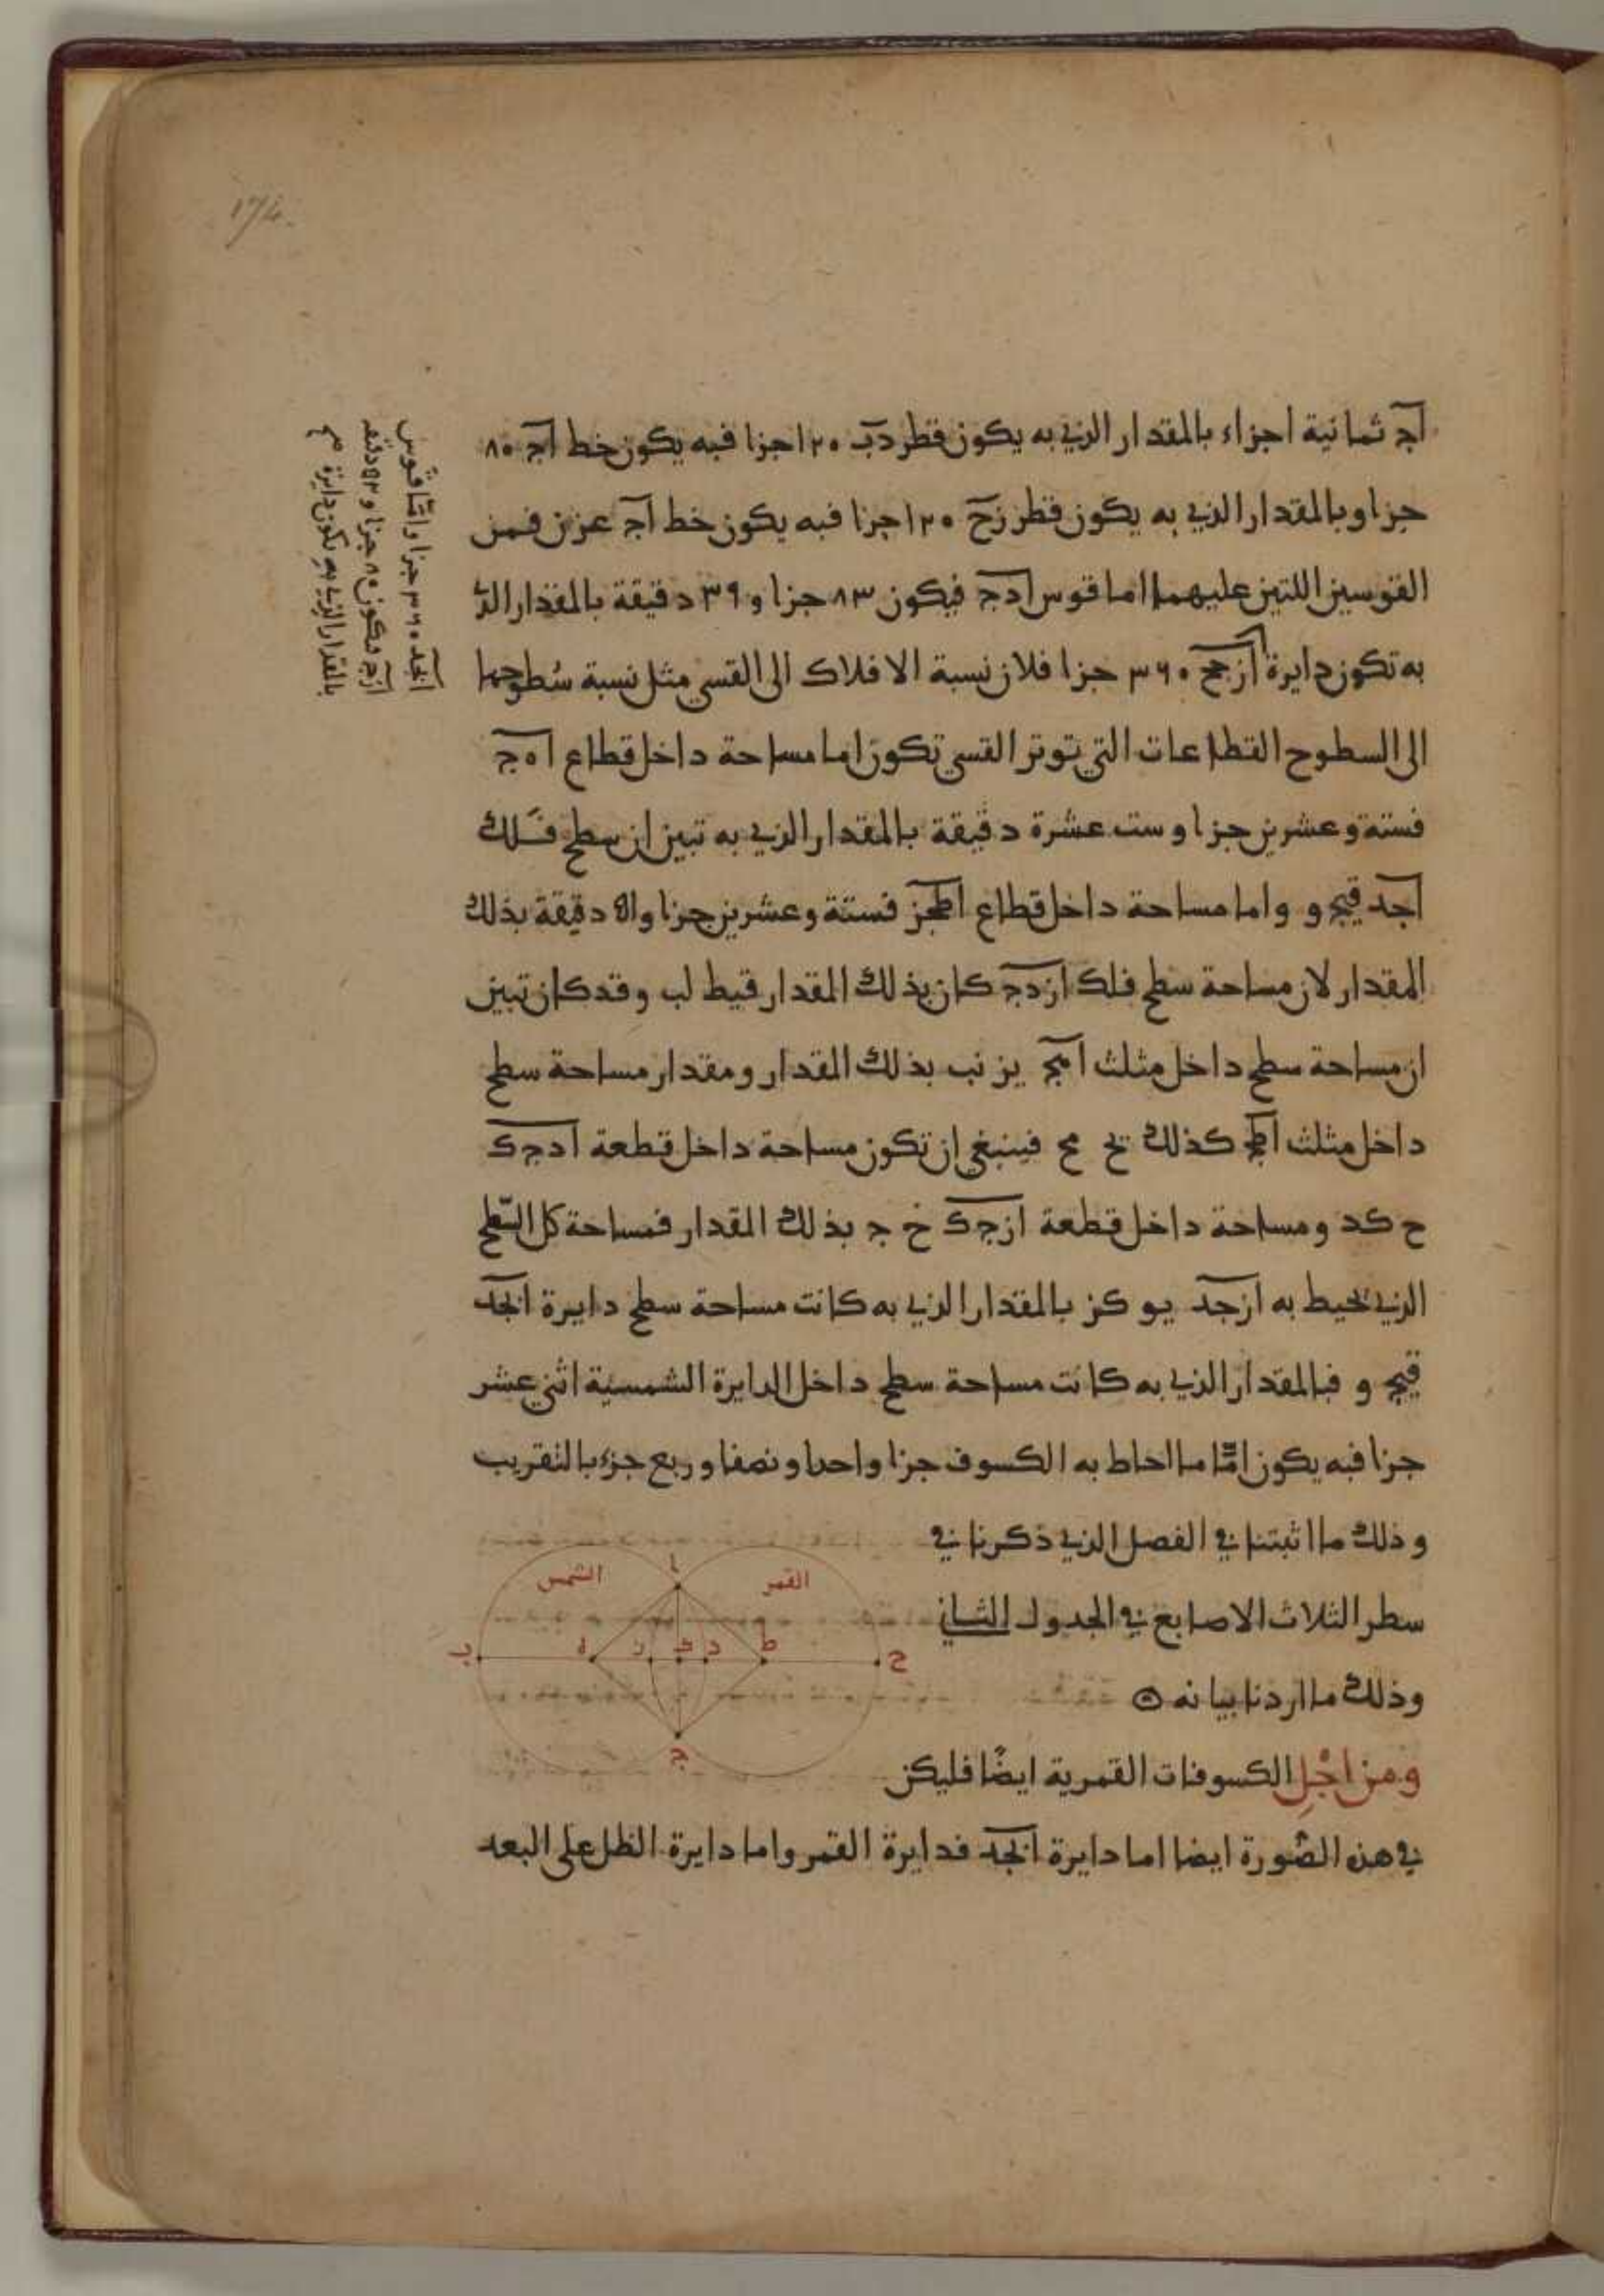 174.
اج ثمانية اجزاء بالمقدار الذي به يكون قطر دب ١٢٠ جزا فبه يكون خط اج ٨٠
جزا وبالمقدار الذي به يكون قطر زح ١٢٠ جزا فبه يكون خط اج عز ن فمن
القوسين اللتين عليهما اما قوس ادج فيكون ٨٣ جزا و ٣٩ دقيقة بالمقدار الذي
به تكون دايرة ازجح ٣٦٠ جزا فلان نسبة الافلاك الى القسي مثل نسبة سطوحها
الى السطوح القطاعات التي توتر القسي تكون اما مساحة داخل قطاع اه ج
فستة وعشرين جزا وست عشرة دقيقة بالمقدار الذي به تبين ان سطح فلك
ابجد قيج و واما مساحة داخل قطاع اطجز فستة وعشرين جزا و دقيقة بذلك
المقدار لان مساحة سطح فلك ازدج كان بذلك المقدار قيط لب وقد كان تبين
ان مساحة سطح داخل مثلث اهج يز نب بذلك المقدار ومقدار مساحة سطح
داخل مثلث اطج كذلك يح مح فينبغي ان تكون مساحة داخل قطعة ادجك
ح كد ومساحة داخل قطعة ازجك ح ج بذلك المقدار فمساحة كل السطح
الذي يحيط به ازجد يو كز بالمقدار الذي به كانت مساحة سطح دايرة ابجد
قيج و فبالمقدار الذي به كانت مساحة سطح داخل الدايرة الشمسية اثني عشر
جزا فبه يكون امّا ما احاط به الكسوف جزا واحدا ونصفا وربع جزء بالتقريب
وذلك ما اثبتنا في الفصل الذي ذكرنا في
سطر الثلاث الاصابع في الجدول الثاني
وذلك ما اردنا بيانه
القمر
الشمس
ا
ح
ط
د
ك
ز
ه
ب
ج
ومن اجْلِ الكسوفات القمرية ايضًا فليكن
في هذه الصّورة ايضا اما دايرة ابجد فدايرة القمر واما دايرة الظل على البعد
ابجد ٣٦٠ جزا وامّا قوس
ازج فيكون ٨٠ جزا و ٥٢ دقيقة
بالمقدار الذي به تكون دايرة